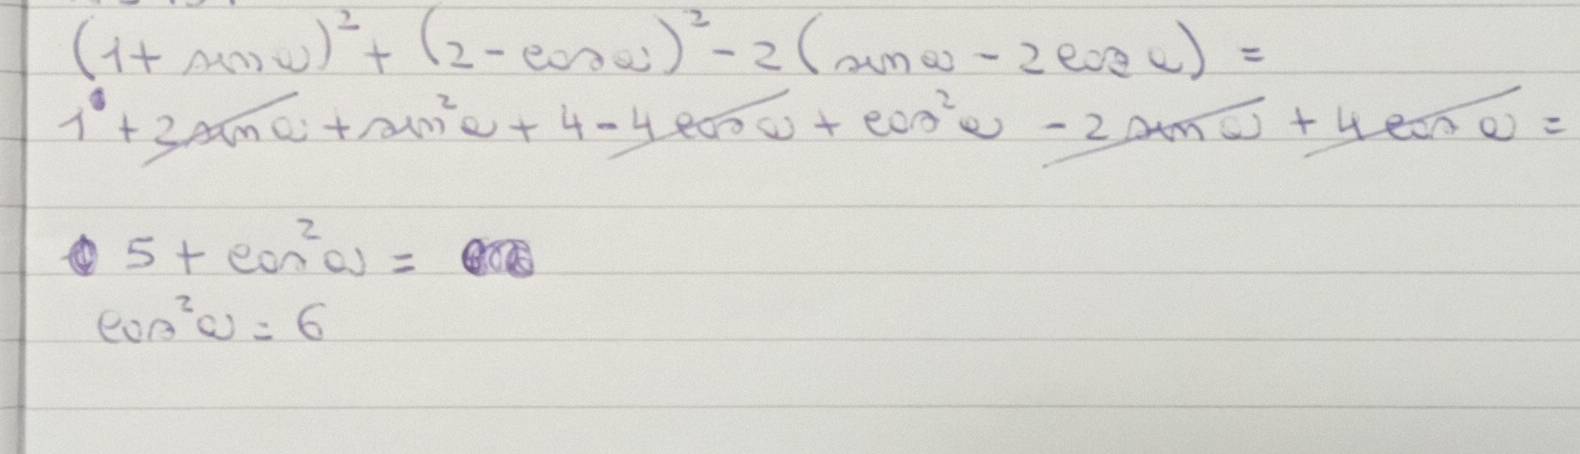 (1 + sin α)² + (2 - cos α)² - 2(sin α - 2 cos α) =
1 + 2 sin α + sin² α + 4 - 4 cos α + cos² α - 2 sin α + 4 cos α =
5 + cos² α =
cos² α = 6